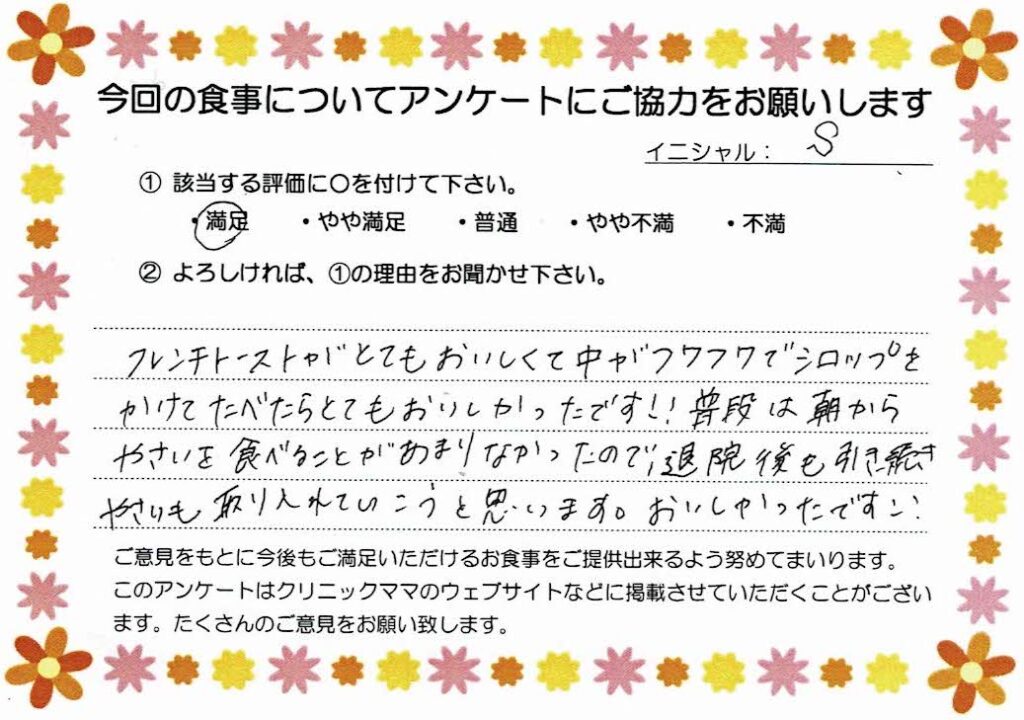 今回の食事についてアンケートにご協力をお願いします
イニシャル： S
① 該当する評価に〇を付けて下さい。
・満足 ・やや満足 ・普通 ・やや不満 ・不満
② よろしければ、①の理由をお聞かせ下さい。
フレンチトーストがとてもおいしくて中がフワフワでシロップを
かけてたべたらとてもおいしかったです!! 普段は朝から
やさいを食べることがあまりなかったので、退院後も引き続き
やさいも取り入れていこうと思います。おいしかったです
ご意見をもとに今後もご満足いただけるお食事をご提供出来るよう努めてまいります。
このアンケートはクリニックママのウェブサイトなどに掲載させていただくことがござい
ます。たくさんのご意見をお願い致します。